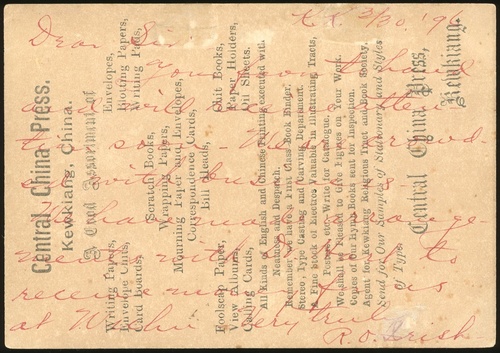 Central China Press,
Kewkiang, China.
A Good Assortment of
Writing Papers, Envelopes,
Envelope Cuts, Blotting Papers,
Card Boards, Writing Pads,
Scratch Books,
Wrapping Papers,
Mourning Paper and Envelopes,
Correspondence Cards,
Bill Heads,
Foolscap Paper, Chit Books,
View Albums, Paper Holders,
Calling Cards, Oil Sheets.
All Kinds of English and Chinese Printing executed with
Neatness and Despatch.
Remember we have a First Class Book Binder.
Stereo, Type Casting and Carving Department.
A Fine Stock of Electros Valuable in Illustrating, Tracts,
Posters, etc. Write for Catalogue.
We shall be Pleased to Give Figures on Your Work.
Copies of Our Hymn Books sent for Inspection.
Agent for Kewkiang Religious Tract and Book Society.
Send for Our Samples of Stationery and Styles
of Type.
Central China Press,
Kewkiang.
K.K. 3/30 '96
Dear Sir
Yours to hand
and will attend
to soon. We are crowd-
ed with business.
arrange-
ment with to
receive of us
at Wuhu Very truly
R.O. Irish